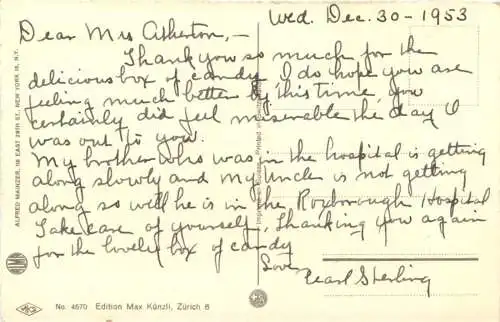 Wed. Dec. 30 - 1953
Dear Mrs Atherton, -
Thank you so much for the
delicious box of candy. I do hope you are
feeling much better by this time you
certainly did feel miserable the day I
was out to you.
My brother who was in the hospital is getting
along slowly and my Uncle is not getting
along so well he is in the Roxborough Hospital
Take care of yourself, Thanking you again
for the lovely box of candy
Love,
Pearl Sterling
ALFRED MAINZER, 118 EAST 28TH ST., NEW YORK 16, N.Y.
No. 4670 Edition Max Künzli, Zürich 6